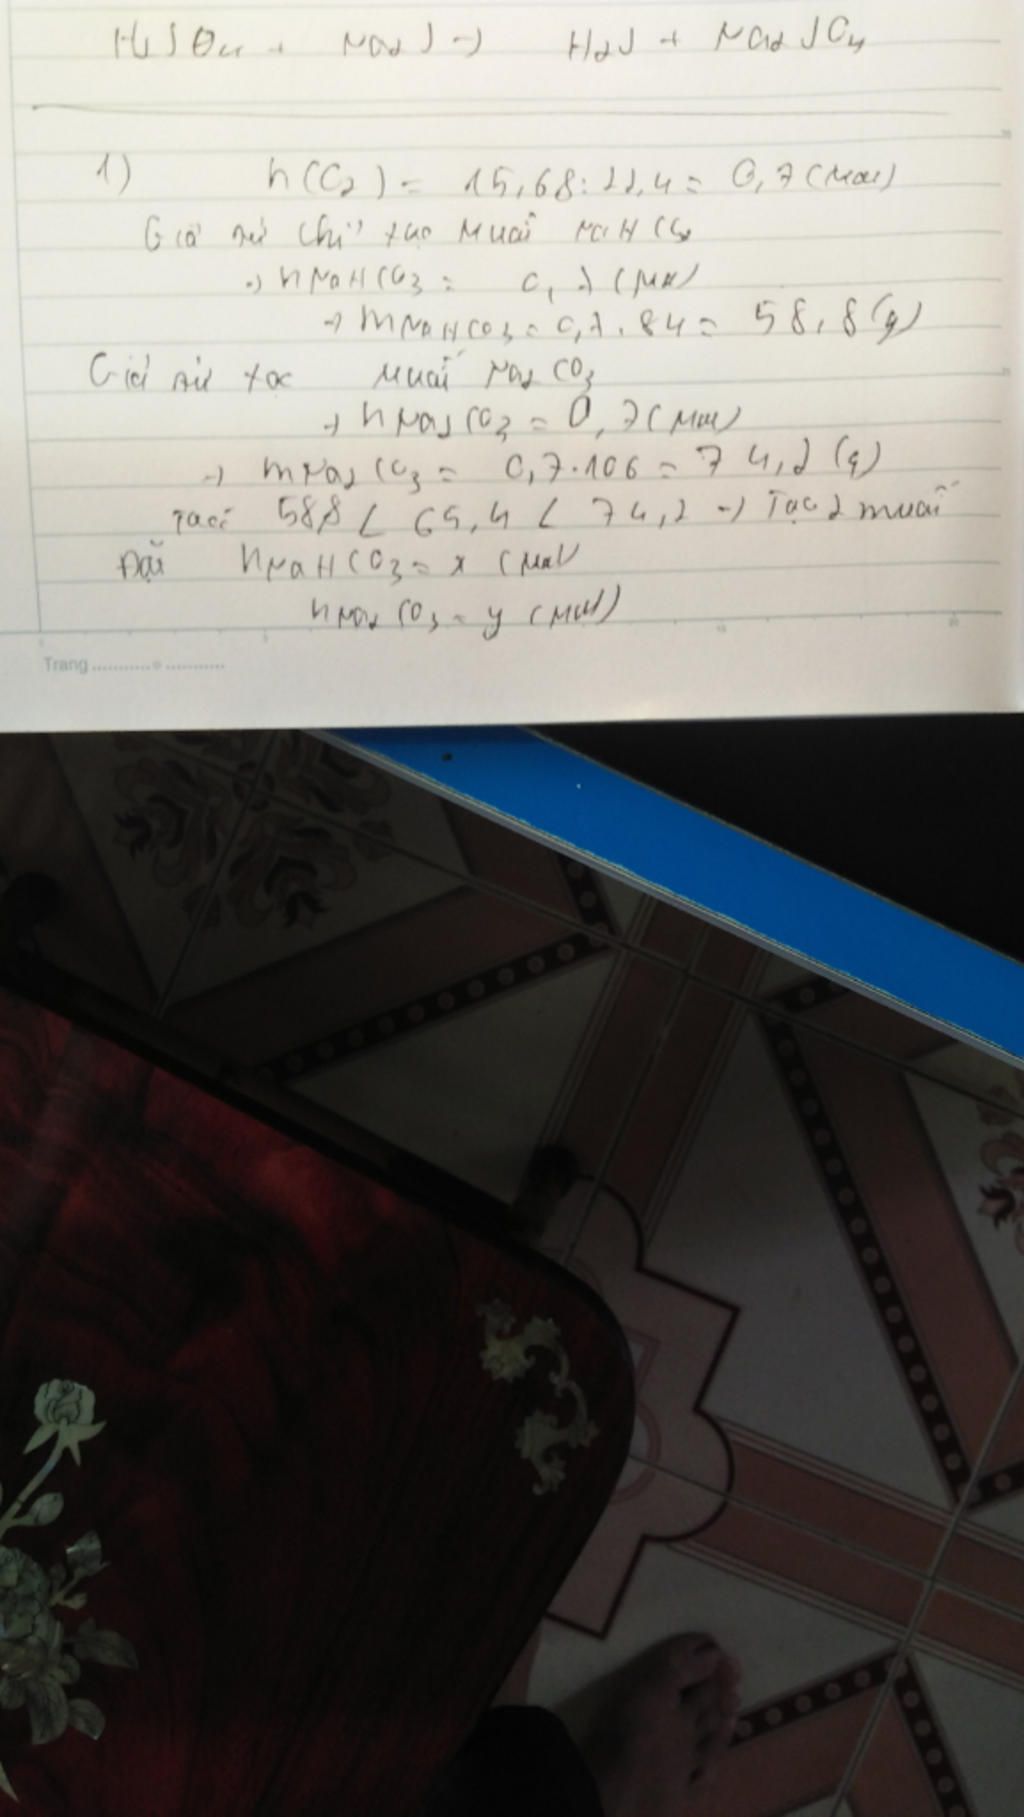 H₂SO₄ + Na₂S → H₂S + Na₂SO₄
1) nCO₂ = 15,68 : 22,4 = 0,7 (mol)
Giả sử chỉ tạo muối NaHCO₃
→ nNaHCO₃ = 0,7 (mol)
→ mNaHCO₃ = 0,7 . 84 = 58,8 (g)
Giả sử tạo muối Na₂CO₃
→ nNa₂CO₃ = 0,7 (mol)
→ mNa₂CO₃ = 0,7.106 = 74,2 (g)
Ta có 58,8 < 65,4 < 74,2 → Tạo 2 muối
Đặt nNaHCO₃ = x (mol)
nNa₂CO₃ = y (mol)
Trang